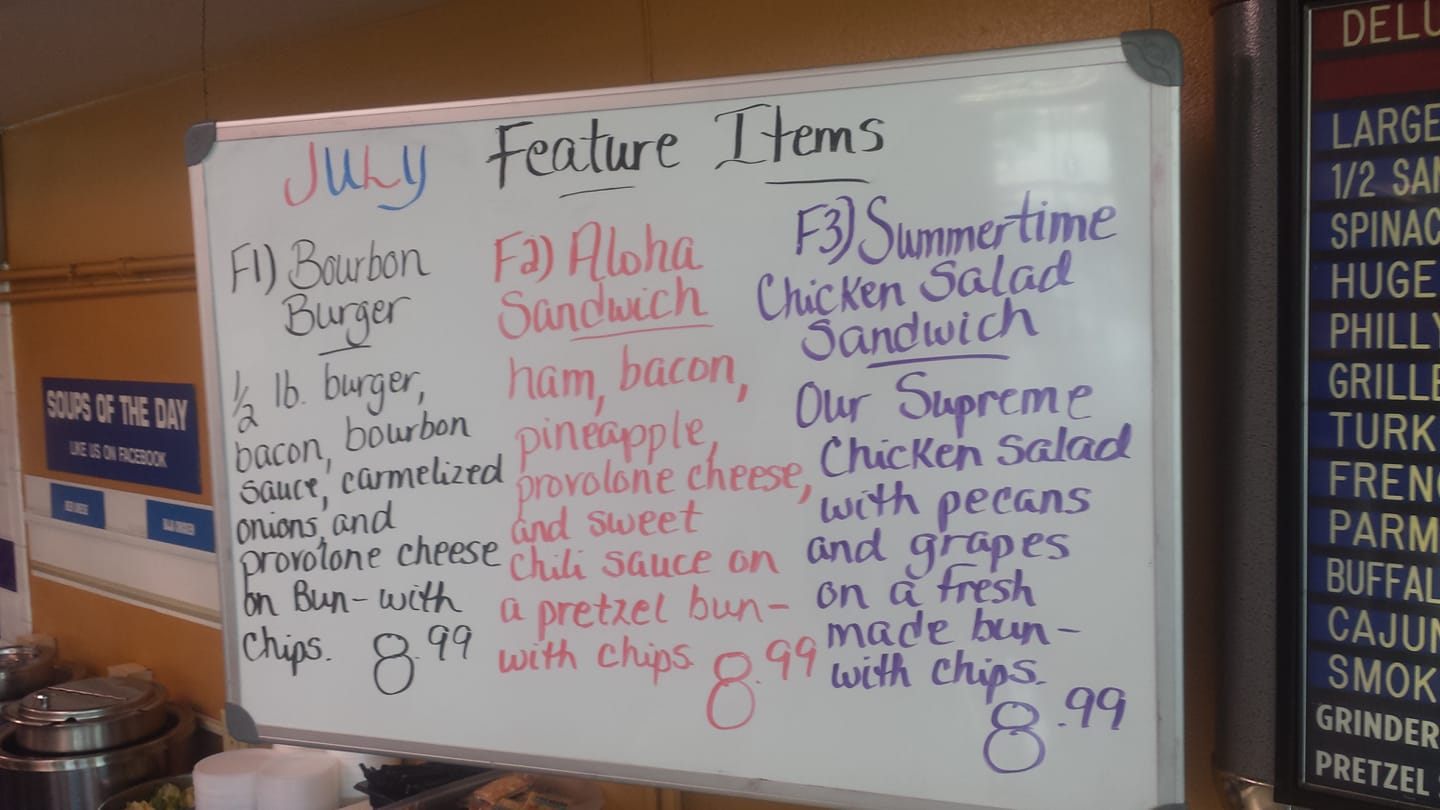 JULY Feature Items
F1) Bourbon
Burger
1/2 lb. burger,
bacon, bourbon
sauce, carmelized
onions, and
provolone cheese
on Bun- with
Chips. 8.99
F2) Aloha
Sandwich
ham, bacon,
pineapple,
provolone cheese,
and sweet
chili sauce on
a pretzel bun-
with chips 8.99
F3) Summertime
Chicken Salad
Sandwich
Our Supreme
Chicken Salad
with pecans
and grapes
on a fresh
made bun-
with chips.
8.99
SOUPS OF THE DAY
LIKE US ON FACEBOOK
LARGE
1/2
HUGE
PHILLY
GRINDER
PRETZEL